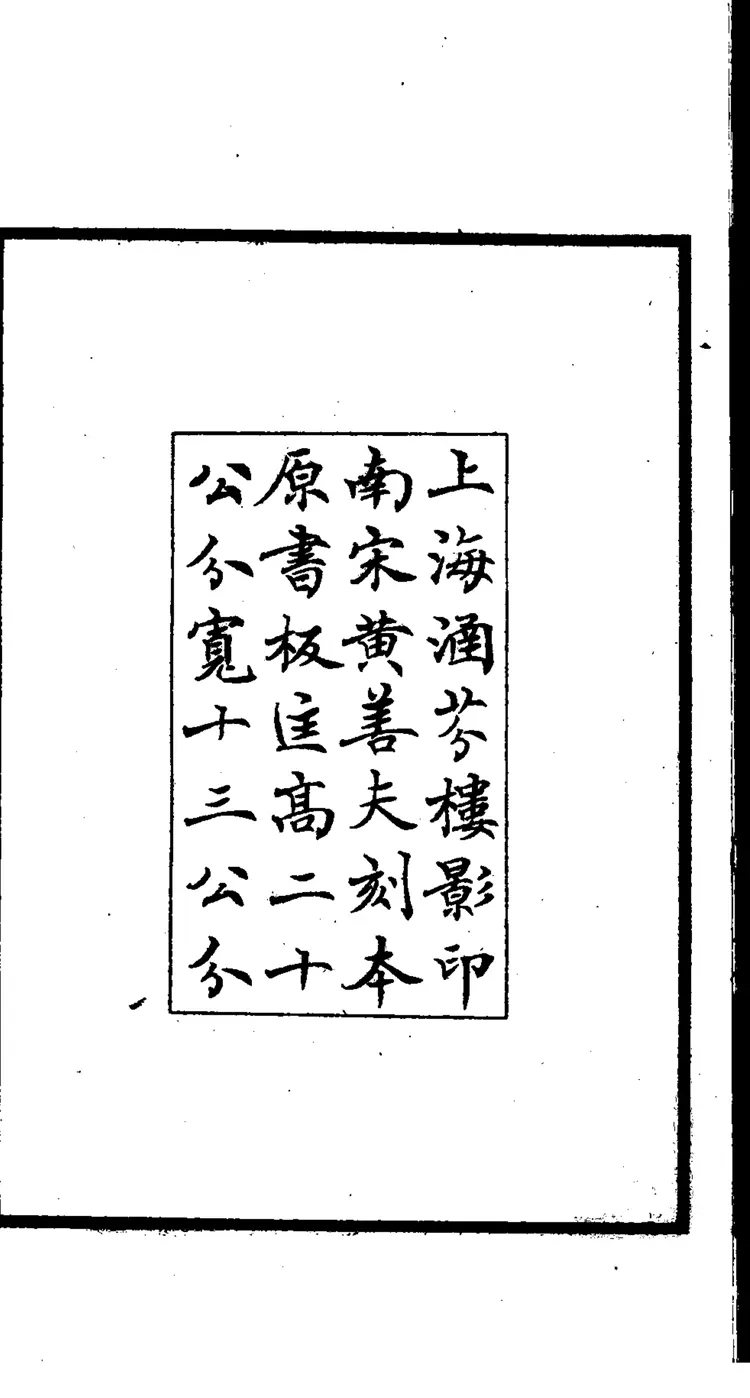 上海涵芬樓影印
南宋黃善夫刻本
原書板匡高二十
公分寬十三公分